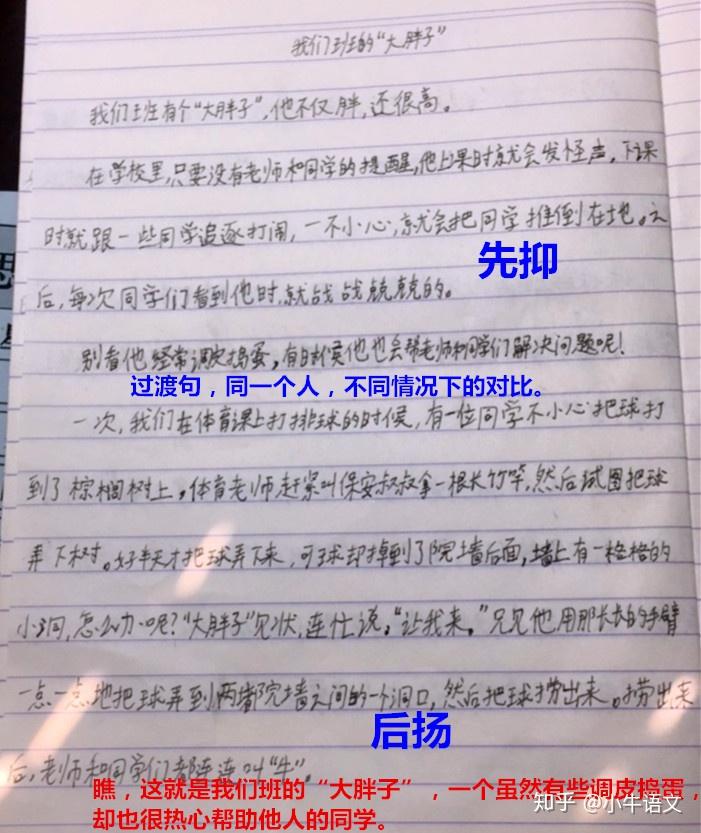 我们班的“大胖子”
我们班有个“大胖子”，他不仅胖，还很高。
在学校里，只要没有老师和同学的提醒，他上课时就会发怪声，下课
时就跟一些同学追逐打闹，一不小心，就会把同学推倒在地。之
先抑
后，每次同学们看到他时，就战战兢兢的。
别看他经常调皮捣蛋，有时候他也会帮老师和同学们解决问题呢！
过渡句，同一个人，不同情况下的对比。
一次，我们在体育课上打排球的时候，有一位同学不小心把球打
到了棕榈树上。体育老师赶紧叫保安叔叔拿一根长竹竿，然后试图把球
弄下树。好半天才把球弄下来，可球却掉到了院墙后面，墙上有一格格的
小洞，怎么办呢？“大胖子”见状，连忙说，“让我来。”只见他用那长长的手臂
一点一点地把球弄到两堵院墙之间的一个洞口，然后把球捞出来。捞出来
后扬
后，老师和同学们都连连叫“牛”。
瞧，这就是我们班的“大胖子”，一个虽然有些调皮捣蛋，
却也很热心帮助他人的同学。
知乎 @小牛语文